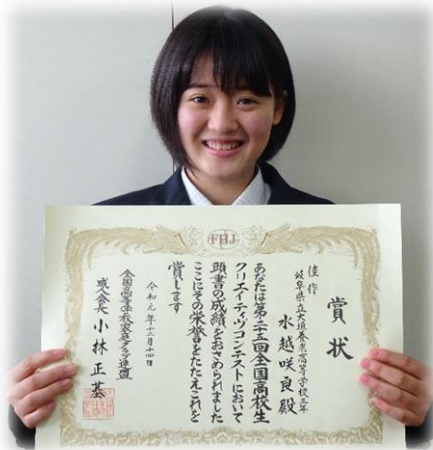 FHJ
賞状
佳作
岐阜県立大垣養老高等学校三年
水越咲良殿
あなたは第二十三回全国高校生
クリエイティヴコンテストにおいて
頭書の成績をおさめられました
ここにその栄誉をたたえこれを
賞します
令和元年十二月十四日
全国高等学校家庭クラブ連盟
成人会長 小林正基